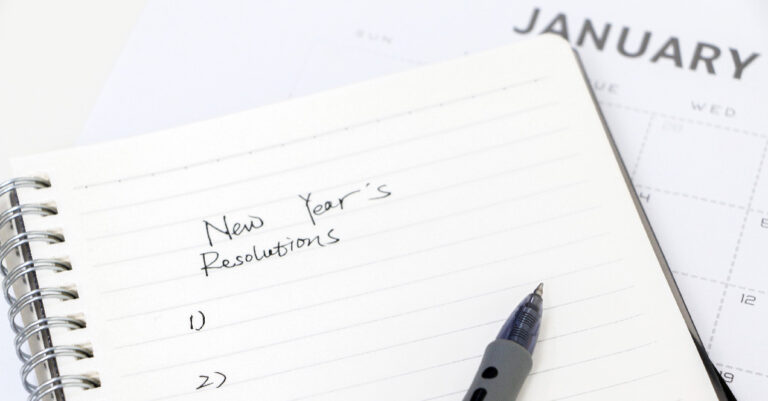 JANUARY
SUN
UE WED
4
New Year's
Resolutions
12
1)
19
2)